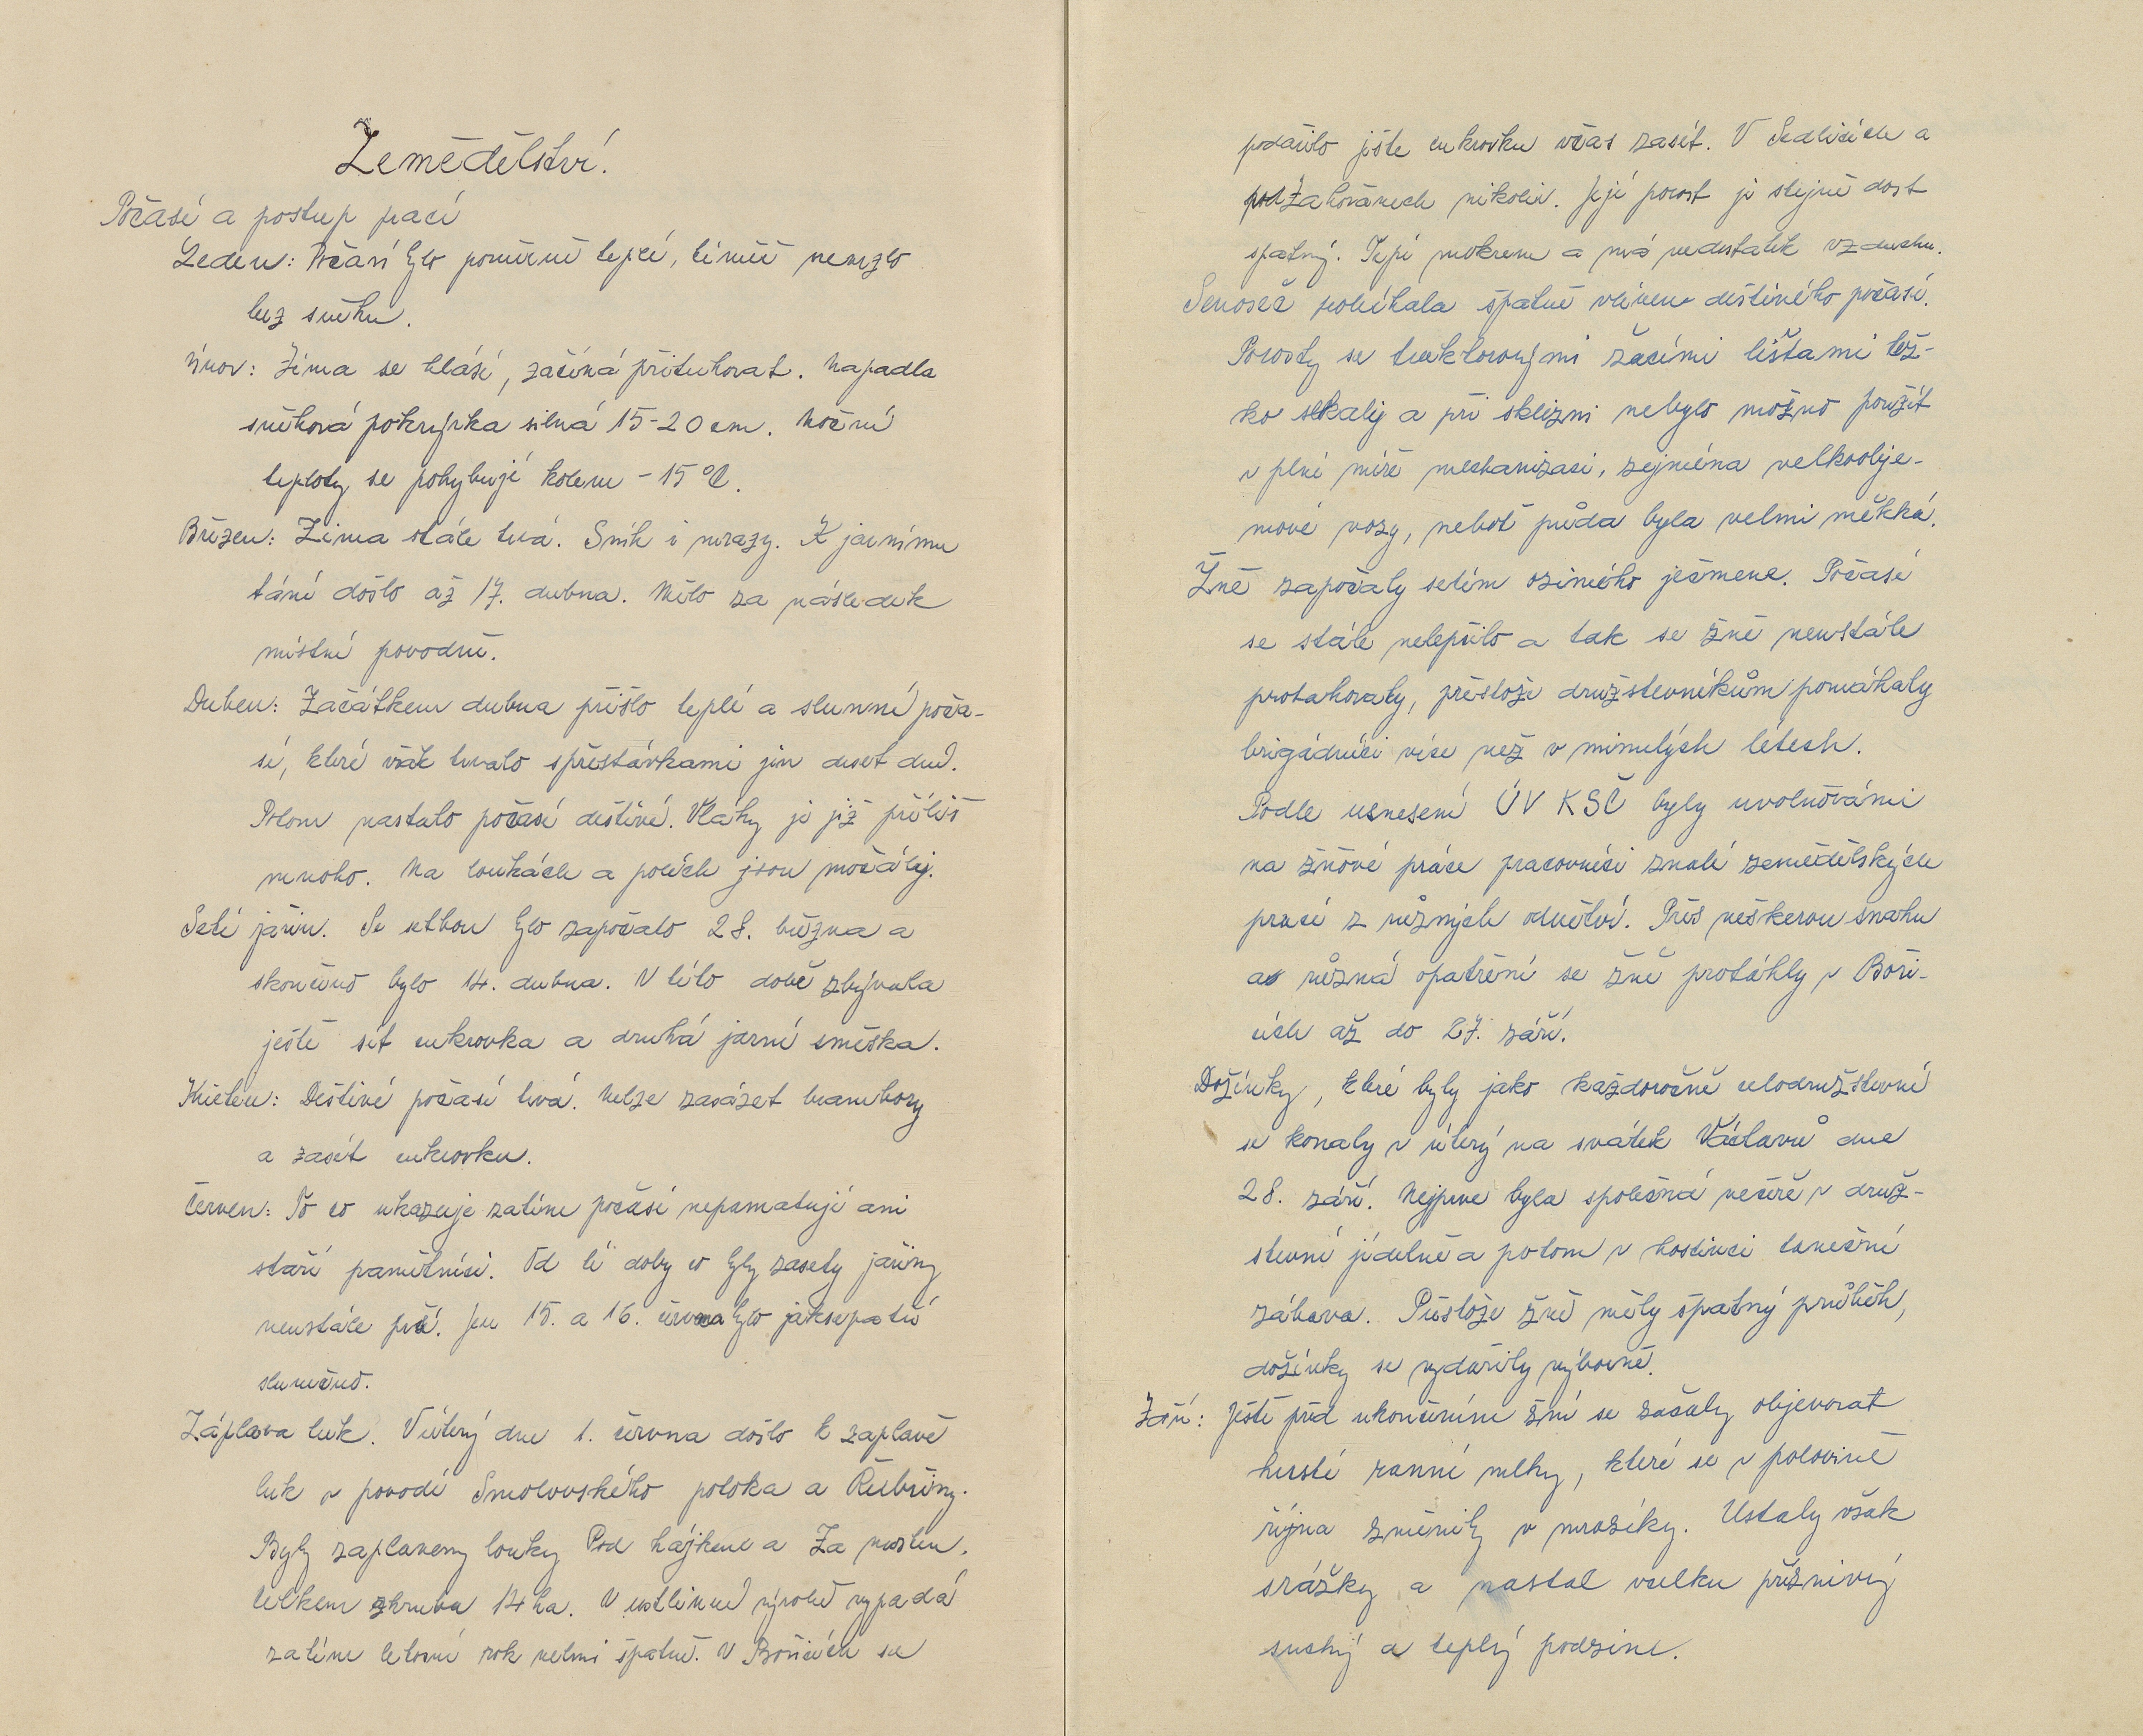 Zemědělství.
Počasí a postup prací
Leden: Počasí bylo poměrně teplé, téměř nemrzlo
bez sněhu.
Únor: Zima se hlásí, začíná přituhovat. Napadla
sněhová pokrývka silná 15-20 cm. Noční
teploty se pohybují kolem -15 °C.
Březen: Zima stále trvá. Sníh i mrazy. K jarnímu
tání došlo až 17. dubna. Mělo za následek
místní povodně.
Duben: Začátkem dubna přišlo teplé a slunné poča-
sí, které však trvalo s přestávkami jen deset dnů.
Potom nastalo počasí deštivé. Vláhy je již příliš
mnoho. Na loukách a polích jsou močály.
Setí jařin. Se setbou bylo započato 28. března a
skončeno bylo 14. dubna. V této době zbývala
ještě sít cukrovka a druhá jarní směska.
Květen: Deštivé počasí trvá. Nelze zasázet brambory
a zasít cukrovku.
Červen: To co ukazuje zatím počasí nepamatují ani
staří pamětníci. Od té doby co byly zasety jařiny
neustále prší. Jen 15. a 16. června bylo jaksepatří
slunečno.
Záplava luk. V úterý dne 1. června došlo k zaplavě
luk v povodí Smolovského potoka a Řebřiny.
Byly zaplaveny louky Pod hájkem a Za mostem.
Celkem zhruba 14 ha. V rostlinné výrobě vypadá
zatím letošní rok velmi špatně. V Bořicích se
podařilo ještě cukrovku včas zasít. V Sedlišticích a
pod Zahovánech nikoliv. Její porost je stejně dost
špatný. Trpí mokrem a má nedostatek vzduchu.
Senoseč probíhala špatně vlivem deštivého počasí.
Porosty se traktorovými žacími lištami těž-
ko sekaly a při sklizni nebylo možno použít
v plné míře mechanizaci, zejména velkoobje-
mové vozy, neboť půda byla velmi měkká.
Žně započaly setím ozimého ječmene. Počasí
se stále nelepšilo a tak se žně neustále
protahovaly, přestože družstevníkům pomáhaly
brigádníci více než v minulých létech.
Podle usnesení ÚV KSČ byly uvolňováni
na žňové práce pracovníci znalí zemědělských
prací z různých odvětví. Přes veškerou snahu
a různá opatření se žně protáhly v Boři-
cích až do 27. září.
Dožínky, které byly jako každoročně celodružstevní
se konaly v úterý na svátek Václavů dne
28. září. Nejprve byla společná večeře v druž-
stevní jídelně a potom v hostinci taneční
zábava. Přestože žně měly špatný průběh,
dožínky se vydařily výborně.
Září: Ještě před ukončením žní se začaly objevovat
husté ranní mlhy, které se v polovině
října změnily v mrazíky. Ustaly však
srážky a nastal vcelku příznivý
suchý a teplý podzim.